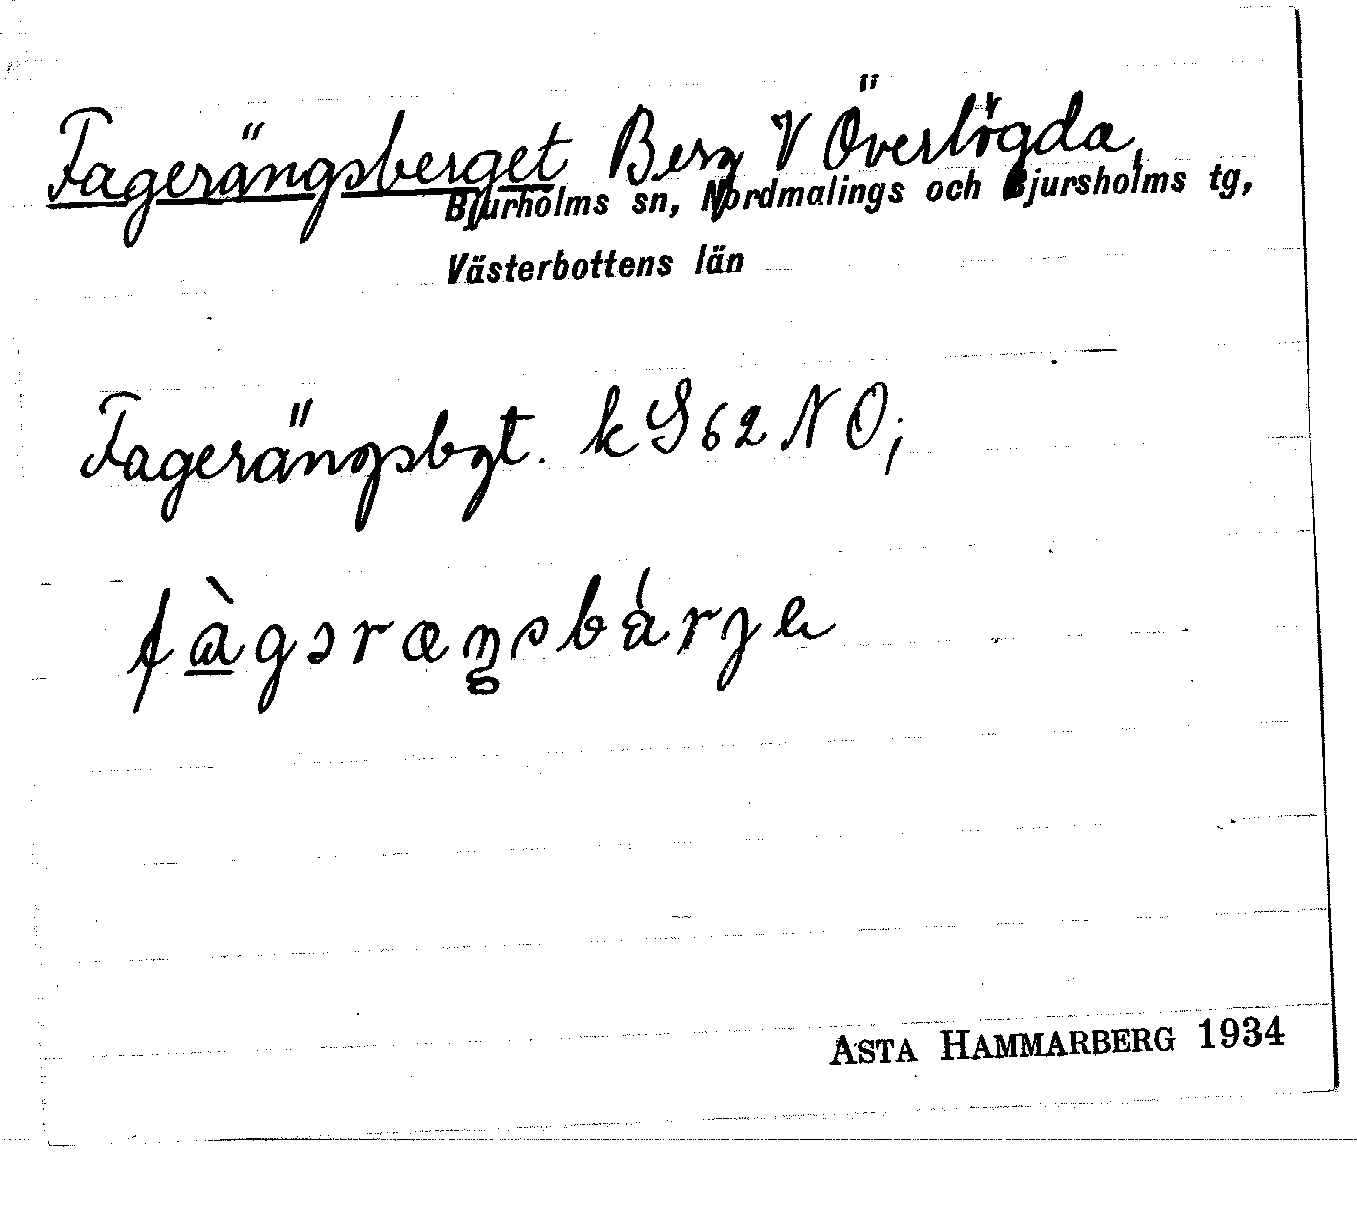 Fagerängsberget Berg V Överlögda,
Bjurholms sn, Nordmalings och Bjursholms tg,
Västerbottens län
Fagerängsbgt. k S 62 N O;
fàgəræŋsbárjɐ
ASTA HAMMARBERG 1934